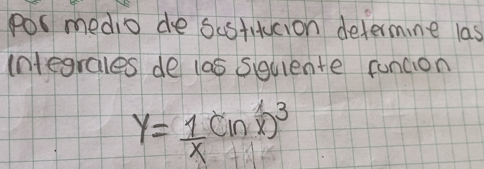 por medio de sustitucion determine las
integrales de las siguiente funcion
y = 1/x (ln x)³